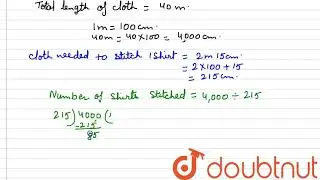 Total length of cloth = 40 m.
1m = 100 cm.
40m = 40×100 = 4000 cm.
Cloth needed to stitch 1 shirt = 2m 15cm.
= 2×100 + 15
= 215 cm.
Number of shirts stitched = 4,000 ÷ 215
215)4000(1
-215
85
doubtnut